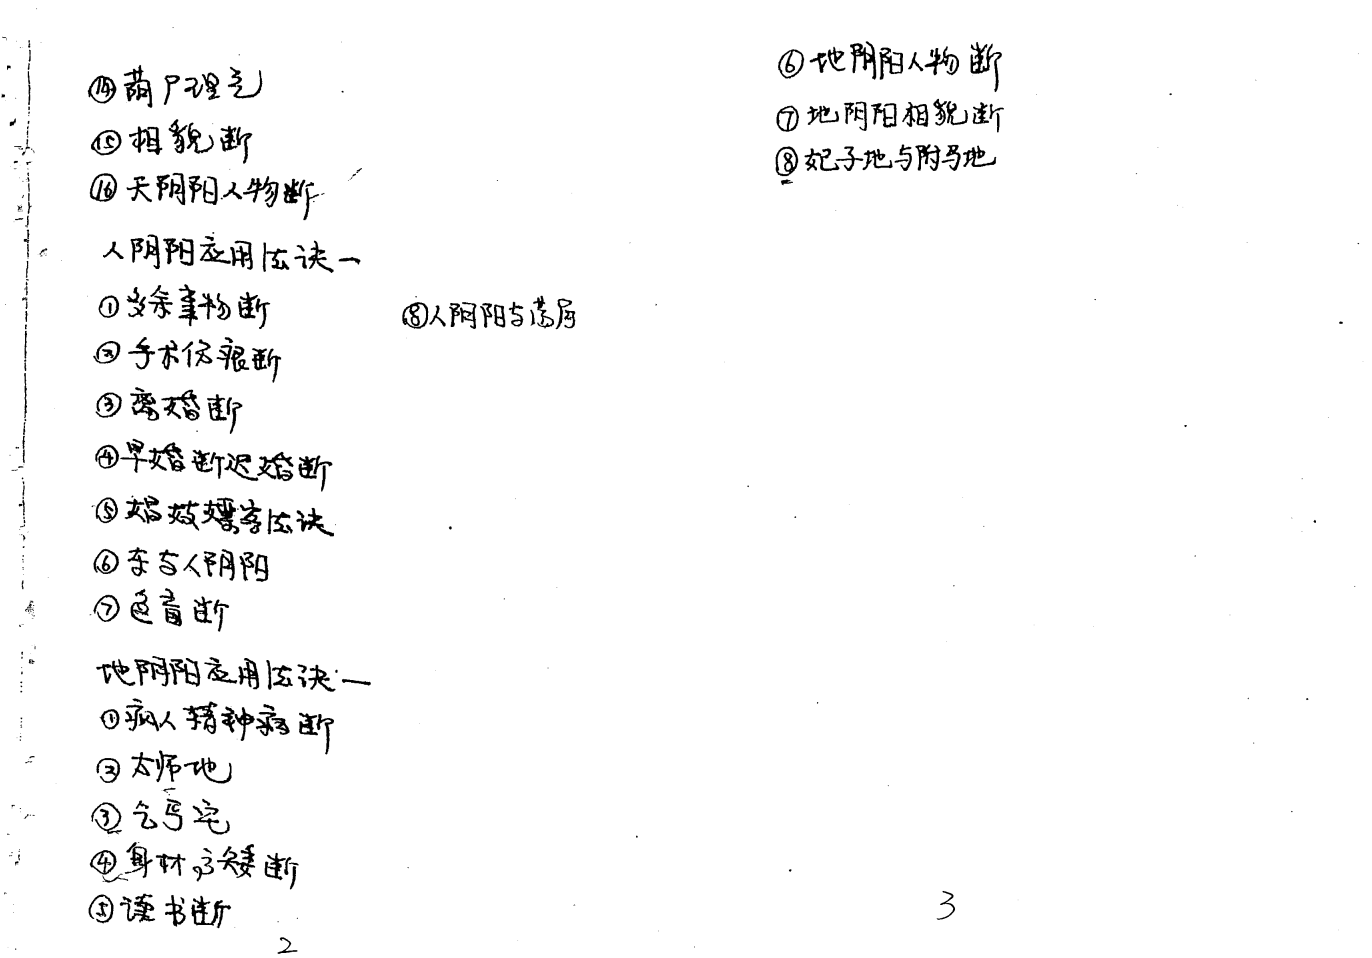 ⑭葫芦理气
⑮相貌断
⑯天阴阳人物断
人阴阳应用法诀一
①多余事物断
②手术伤痕断
③离婚断
④早婚断迟婚断
⑤娼妓嫖客法诀
⑥车与人阴阳
⑦色盲断
⑧人阴阳与
地阴阳应用法诀一
①病人精神病断
②太师地
③乞丐宅
④身材高矮断
⑤读书断
2
⑥地阴阳人物断
⑦地阴阳相貌断
⑧妃子地与附马地
3